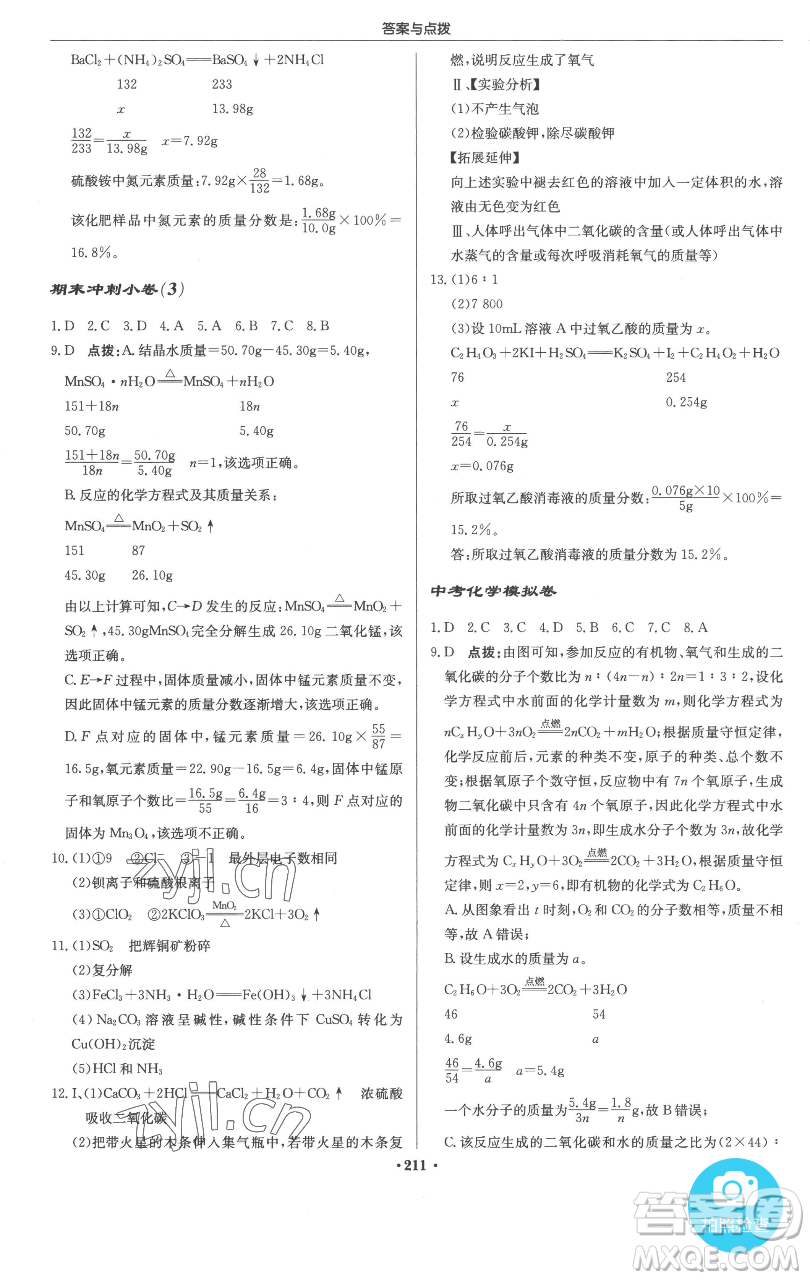 答案与点拨
BaCl₂+(NH₄)₂SO₄══BaSO₄↓+2NH₄Cl
132 233
x 13.98g
132/233=x/13.98g x=7.92g
硫酸铵中氮元素质量:7.92g×28/132=1.68g。
该化肥样品中氮元素的质量分数是:1.68g/10.0g×100%=
16.8%。
期末冲刺小卷(3)
1.D 2.C 3.D 4.A 5.A 6.B 7.C 8.B
9.D 点拨:A.结晶水质量=50.70g-45.30g=5.40g,
MnSO₄·nH₂O══△MnSO₄+nH₂O
151+18n 18n
50.70g 5.40g
151+18n/18n=50.70g/5.40g n=1,该选项正确。
B.反应的化学方程式及其质量关系:
MnSO₄══△MnO₂+SO₂↑
151 87
45.30g 26.10g
由以上计算可知,C→D发生的反应:MnSO₄══△MnO₂+
SO₂↑,45.30gMnSO₄完全分解生成26.10g二氧化锰,该
选项正确。
C.E→F过程中,固体质量减小,固体中锰元素质量不变,
因此固体中锰元素的质量分数逐渐增大,该选项正确。
D.F点对应的固体中,锰元素质量=26.10g×55/87=
16.5g,氧元素质量=22.90g-16.5g=6.4g,固体中锰原
子和氧原子个数比=16.5g/55=6.4g/16=3∶4,则F点对应的
固体为Mn₃O₄,该选项不正确。
10.(1)①9 ②Cl⁻ ③-1 最外层电子数相同
(2)钡离子和硫酸根离子
(3)①ClO₂ ②2KClO₃══MnO₂/△2KCl+3O₂↑
11.(1)SO₂ 把辉铜矿粉碎
(2)复分解
(3)FeCl₃+3NH₃·H₂O══Fe(OH)₃↓+3NH₄Cl
(4)Na₂CO₃溶液呈碱性,碱性条件下CuSO₄转化为
Cu(OH)₂沉淀
(5)HCl和NH₃
12.Ⅰ、(1)CaCO₃+2HCl══CaCl₂+H₂O+CO₂↑ 浓硫酸
吸收二氧化碳
(2)把带火星的木条伸入集气瓶中,若带火星的木条复
燃,说明反应生成了氧气
Ⅱ、【实验分析】
(1)不产生气泡
(2)检验碳酸钾,除尽碳酸钾
【拓展延伸】
向上述实验中褪去红色的溶液中加入一定体积的水,溶
液由无色变为红色
Ⅲ、人体呼出气体中二氧化碳的含量(或人体呼出气体中
水蒸气的含量或每次呼吸消耗氧气的质量等)
13.(1)6∶1
(2)7 800
(3)设10mL溶液A中过氧乙酸的质量为x。
C₂H₄O₃+2KI+H₂SO₄══K₂SO₄+I₂+C₂H₄O₂+H₂O
76 254
x 0.254g
76/254=x/0.254g
x=0.076g
所取过氧乙酸消毒液的质量分数:0.076g×10/5g×100%=
15.2%。
答:所取过氧乙酸消毒液的质量分数为15.2%。
中考化学模拟卷
1.D 2.C 3.C 4.D 5.D 6.C 7.C 8.A
9.D 点拨:由图可知,参加反应的有机物、氧气和生成的二
氧化碳的分子个数比为n∶(4n-n)∶2n=1∶3∶2,设化
学方程式中水前面的化学计量数为m,则化学方程式为
nCₓHᵧO+3nO₂══点燃2nCO₂+mH₂O;根据质量守恒定律,
化学反应前后,元素的种类不变,原子的种类、数目不
变,根据氧原子个数守恒,反应物中有7n个氧原子,生成
物二氧化碳中只含有4n个氧原子,因此化学方程式中水
前面的计量数为3n,即生成水分子个数为3n,故化学方
程式为CₓHᵧO+3O₂══点燃2CO₂+3H₂O;根据质量守恒
定律,则x=2,y=6,即有机物的化学式为C₂H₆O。
A.从图象看出t时刻,O₂和CO₂的分子数相等,质量不相
等,故A错误;
B.设生成水的质量为a。
C₂H₆O+3O₂══点燃2CO₂+3H₂O
46 54
4.6g a
46/54=4.6g/a a=5.4g
一个水分子的质量为5.4g/3n=1.8/n g,故B错误;
C.该反应生成的二氧化碳和水的质量之比为(2×44)∶
·211·
zyjl.cn
zyjl.cn
拍照检查
答案卷
MXQE.COM